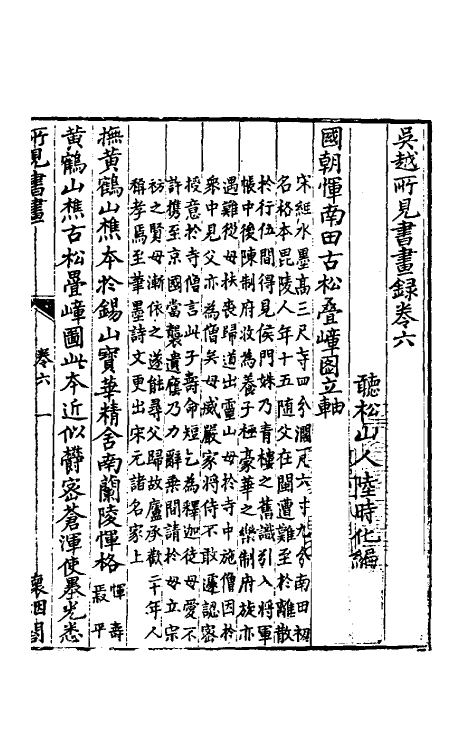 吳越所見書畫錄卷六
聽松山人陸時化編
國朝惲南田古松疊嶂圖立軸
宋經水墨高三尺寺四分濶尺六寸九分南田初
名格本毘陵人年十五隨父在閩遭難至於離散
於行伍間得見侯門姝乃青樓之舊識引入將軍
帳中後陳制府收為養子極豪華之樂制府族亦
遇難從母扶喪歸道出靈山母於寺中施僧因於
衆中見父亦為僧矣母威嚴家將侍不敢遽認密
授意於寺僧言此子壽命短乞為釋迦徒母愛不
許携至京國當襲遺廕乃力辭乘間請於母立宗
祊之賢母漸依之遂能尋父歸故廬承歡二十年人
稱孝焉至華墨詩文更出宋元諸名家上
撫黃鶴山樵本於錫山寶華精舍南蘭陵惲格 惲壽 叕平
黃鶴山樵古松疊嶂圖此本近似欝密蒼渾使墨光悉
所見書畫 卷六 一 褱烟閣